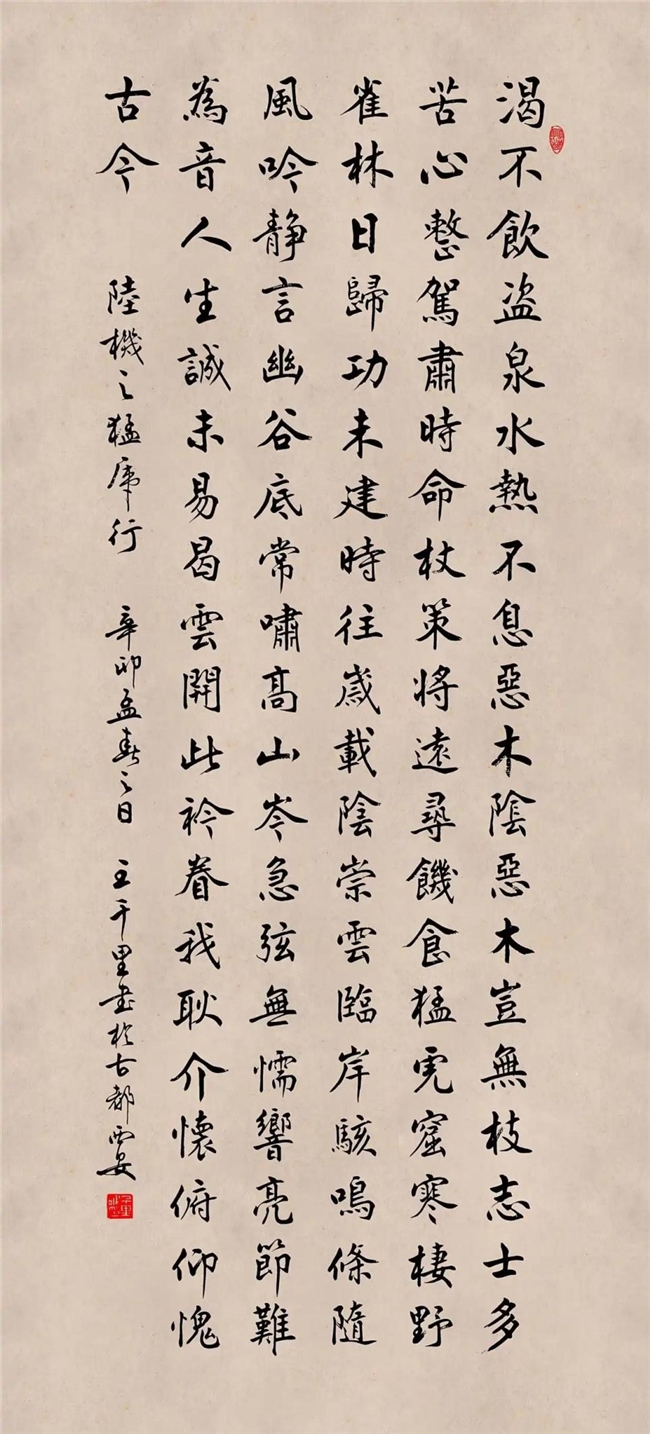 渴不飲盗泉水熱不息惡木陰惡木豈無枝志士多
苦心整駕肅時命杖策將遠尋饑食猛虎窟寒棲野
雀林日歸功未建時往歲載陰崇雲臨岸駭鳴條隨
風吟静言幽谷底常嘯高山岑急弦無懦響亮節難
為音人生誠未易曷雲開此衿眷我耿介懷俯仰愧
古今 陸機之猛虎行 辛卯孟春之日 王千里書於古都西安